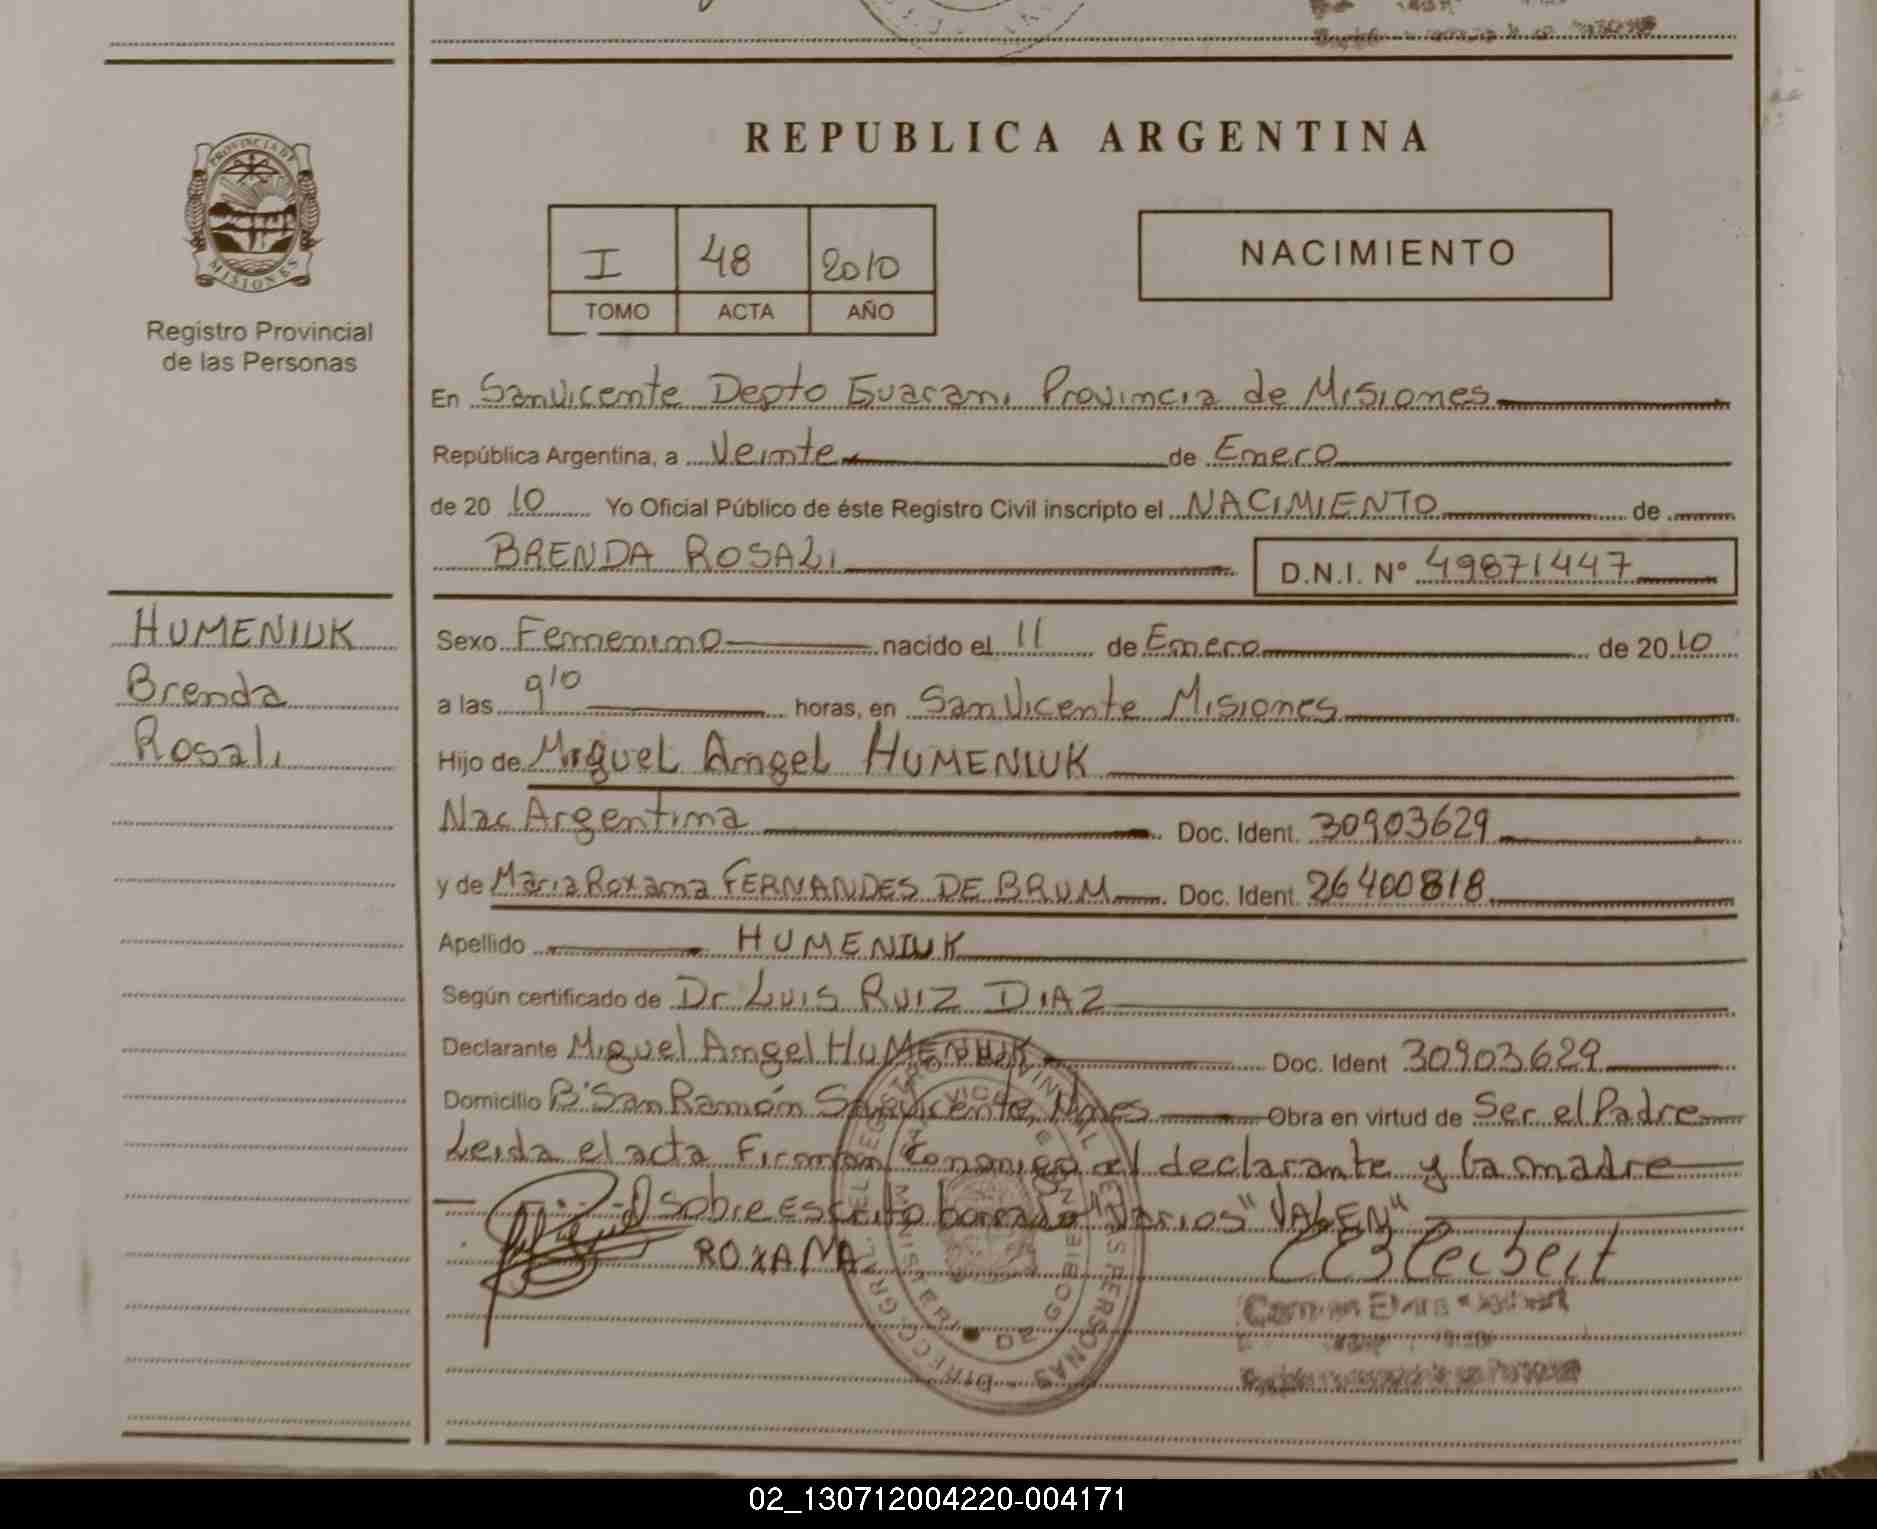 REPUBLICA ARGENTINA
PROVINCIA DE
MISIONES
Registro Provincial
de las Personas
I 48 2010
TOMO ACTA AÑO
NACIMIENTO
En San Vicente Depto Guarani Provincia de Misiones
República Argentina, a Veinte de Enero
de 20 10 Yo Oficial Público de éste Registro Civil inscripto el NACIMIENTO de
BRENDA ROSALI D.N.I. Nº 49871447
HUMENIUK
Brenda
Rosali
Sexo Femenino nacido el 11 de Enero de 20 10
a las 9/10 horas, en San Vicente Misiones
Hijo de Miguel Angel HUMENIUK
Nac Argentina Doc. Ident. 30903629
y de Maria Roxana FERNANDES DE BRUM Doc. Ident. 26400818
Apellido HUMENIUK
Según certificado de Dr LUIS RUIZ DIAZ
Declarante Miguel Angel HUMENIUK Doc. Ident 30903629
Domicilio Bº San Ramón San Vicente, Mnes Obra en virtud de Ser el Padre
Leida el acta Firman conmigo el declarante y la madre
sobre escrito borrado "Varios" VALEN"
ROXANA
02_130712004220-004171